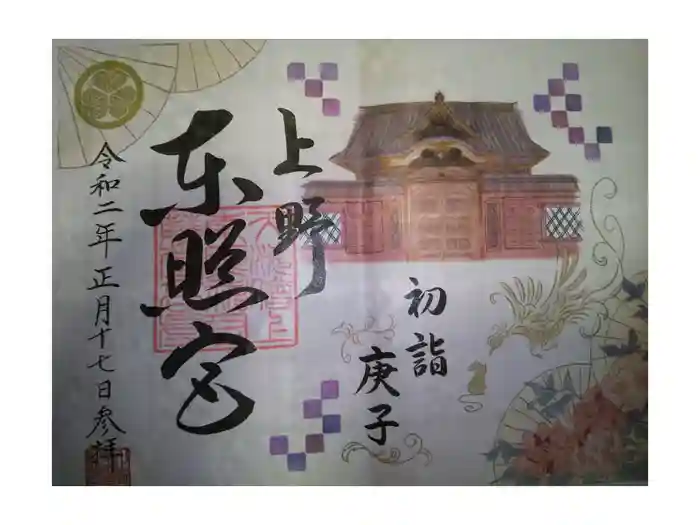 初詣
庚子
上野
東照宮
令和二年正月十七日参拝